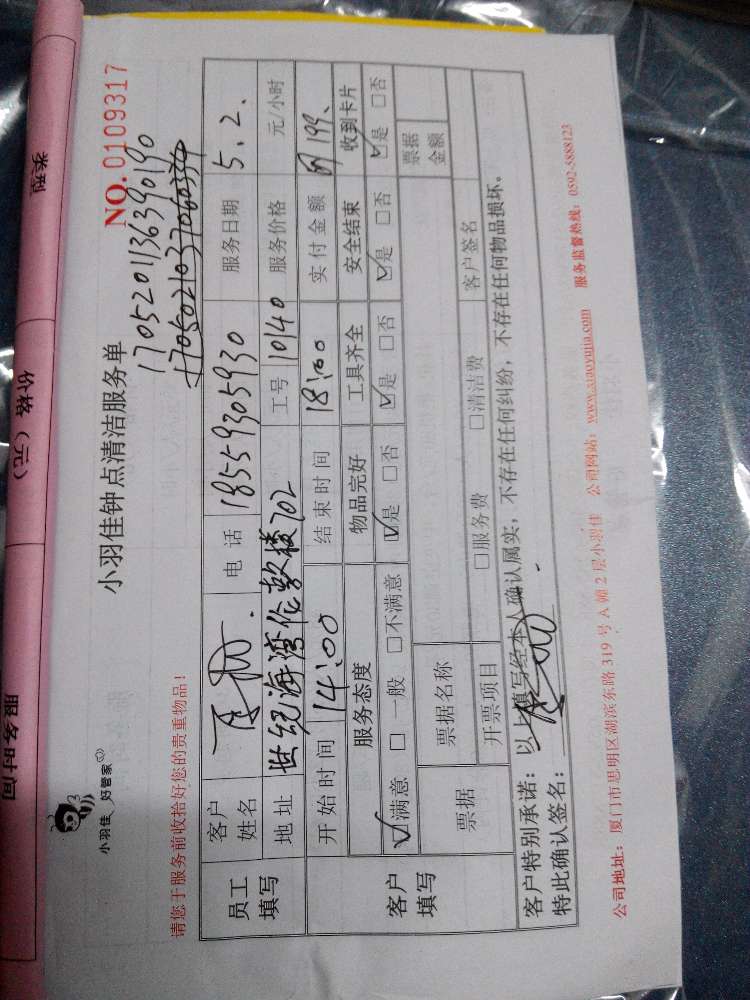 小羽佳 好管家
小羽佳钟点清洁服务单
NO. 0109317
170520113639 0190
请您于服务前收拾好您的贵重物品！
员工填写 客户姓名 电话 18559305930 服务日期 5.2.
地址 世纪海湾伦敦楼702 工号 10140 服务价格 元/小时
客户填写 开始时间 14:00 结束时间 18:00 实付金额 199、
服务态度 物品完好 工具齐全 安全结束 收到卡片
☑满意 □一般 □不满意 ☑是 □否 ☑是 □否 ☑是 □否 ☑是 □否
票据 票据名称 票据金额
开票项目 □服务费 □清洁费 客户签名
客户特别承诺：以上填写经本人确认属实，不存在任何纠纷，不存在任何物品损坏。
特此确认签名：
公司地址：厦门市思明区湖滨东路319号A幢2层小羽佳 公司网站：www.xiaoyujia.com 服务监督热线：0592-5888123
类型
价格（元）
服务时间